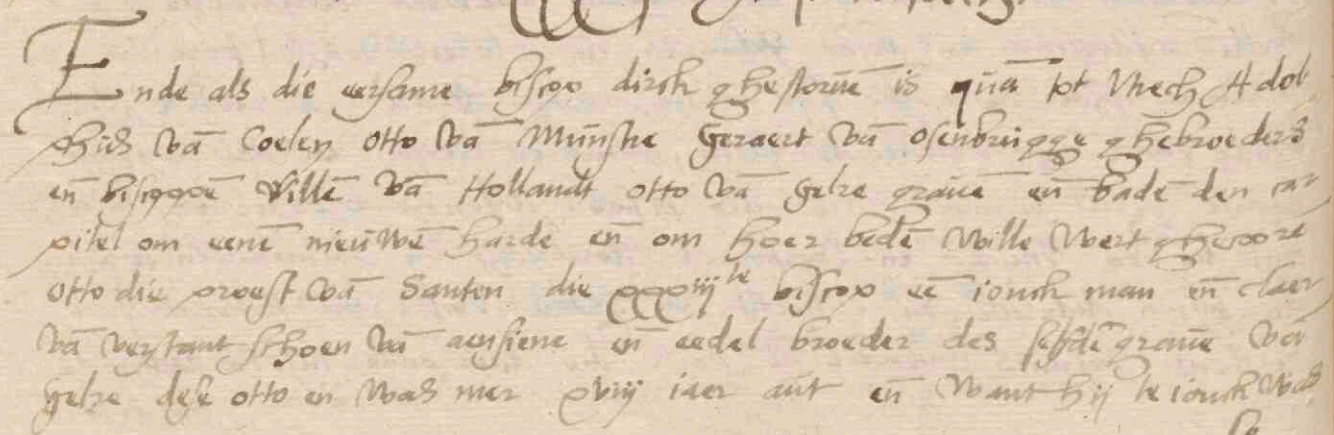 Ende als die eersame biscop dirck ghestoruē is quā tot Vtrech Adol
phus vā Coelen otto vā Munstre Geraert vā osenbrugge ghebroeders
eñ biscoppē Willē vā Hollandt otto vā gelre grauē eñ badē den ca
pittel om eenē nieuwē harde eñ om hoer bedē wille wert ghecore
otto die proest vā Santen die xxxiijte biscop eē ionck man eñ claer
vā verstant schoen vā aensiene eñ eedel broeder des selfdē grauē vā
gelre dese otto en was mer xviij iaer aut eñ want hij te ionck was